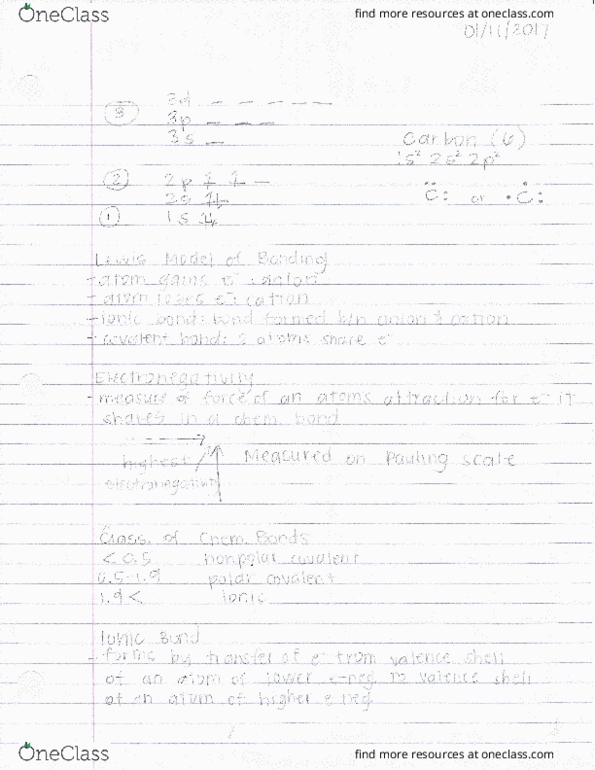 OneClass
find more resources at oneclass.com
01/11/2017
3d _ _ _ _ _
③ 3p _ _ _
3s _
Carbon (6)
1s² 2s² 2p²
② 2p 1 1 _
2s 1L
C: or •C:
① 1s 1L
Lewis Model of Bonding
- atom gains e⁻: anion
- atom loses e⁻: cation
- ionic bond: bond formed b/n anion & cation
- covalent bond: 2 atoms share e⁻
Electronegativity
- measure of force of an atoms attraction for e⁻ it
shares in a chem bond
highest
electronegativity
Measured on Pauling scale
Class. of Chem. Bonds
< 0.5 nonpolar covalent
0.5-1.9 polar covalent
1.9 < Ionic
Ionic Bond
- forms by transfer of e⁻ from valence shell
of an atom of lower e-neg to valence shell
of an atom of higher e neg
OneClass
find more resources at oneclass.com